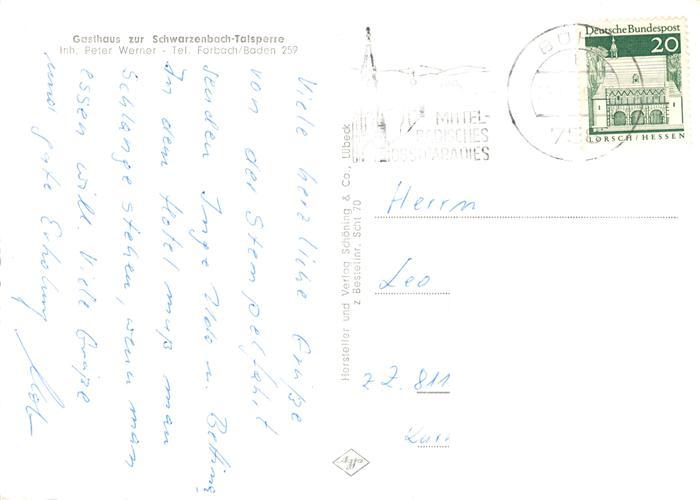 Gasthaus zur Schwarzenbach-Talsperre
Inh. Peter Werner - Tel. Forbach/Baden 259
Viele herzliche Grüße
von der Stempelfahrt
senden Inge Ilda u. Bettina
In dem Hotel muß man
Schlange stehen, wenn man
essen will. Viele Grüße
und gute Erholung
Hersteller und Verlag Schöning & Co., Lübeck
z Bestellnr. Scht 70
MITTEL-
BADISCHES
OBSTPARADIES
BÜ
75
Deutsche Bundespost
20
LORSCH/HESSEN
Herrn
Leo
z.Z. 811
agfa